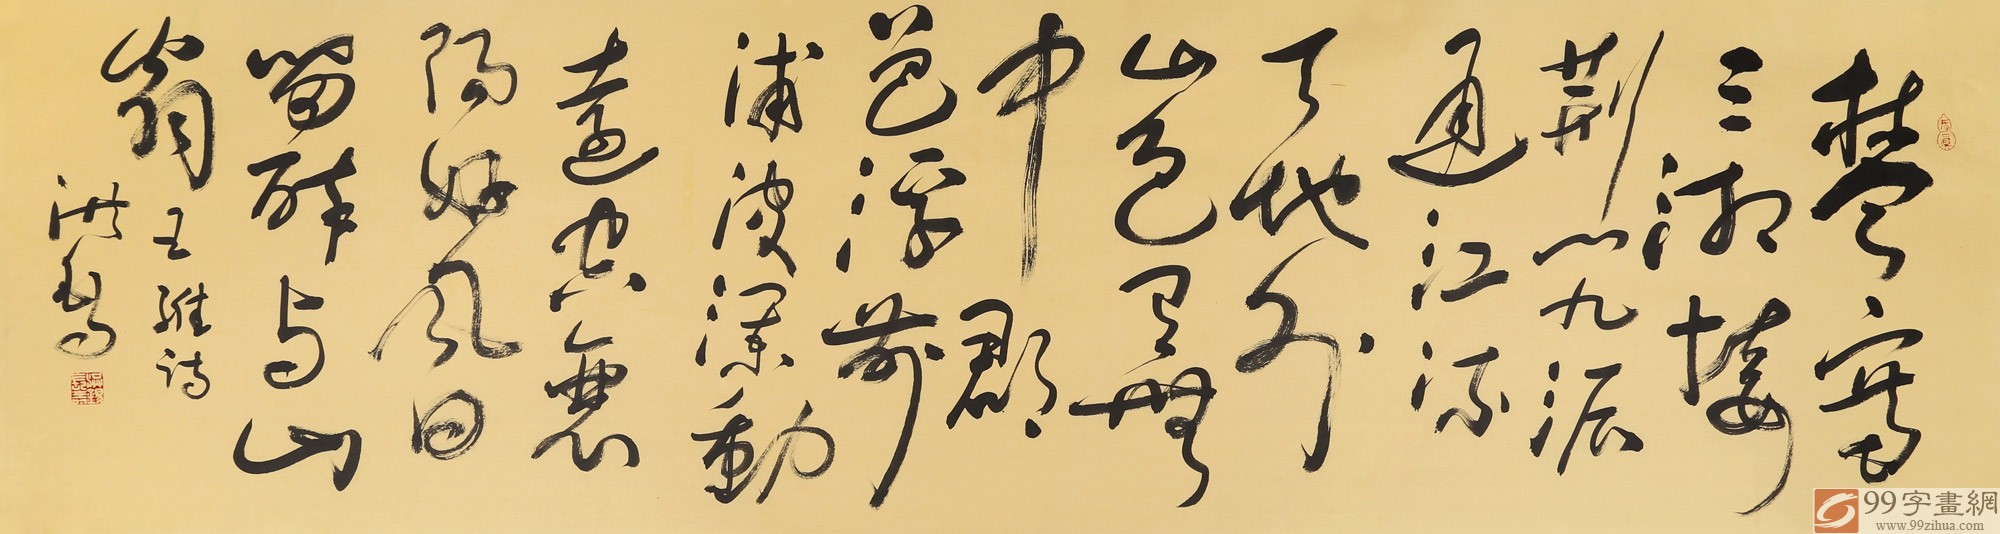 楚塞
三湘接
荆门九派
通江流
天地外
山色有無
中郡
邑浮前
浦波澜動
遠空襄
陽好风日
留醉与山
翁
王维诗
洪
99字畫網
www.99zihua.com